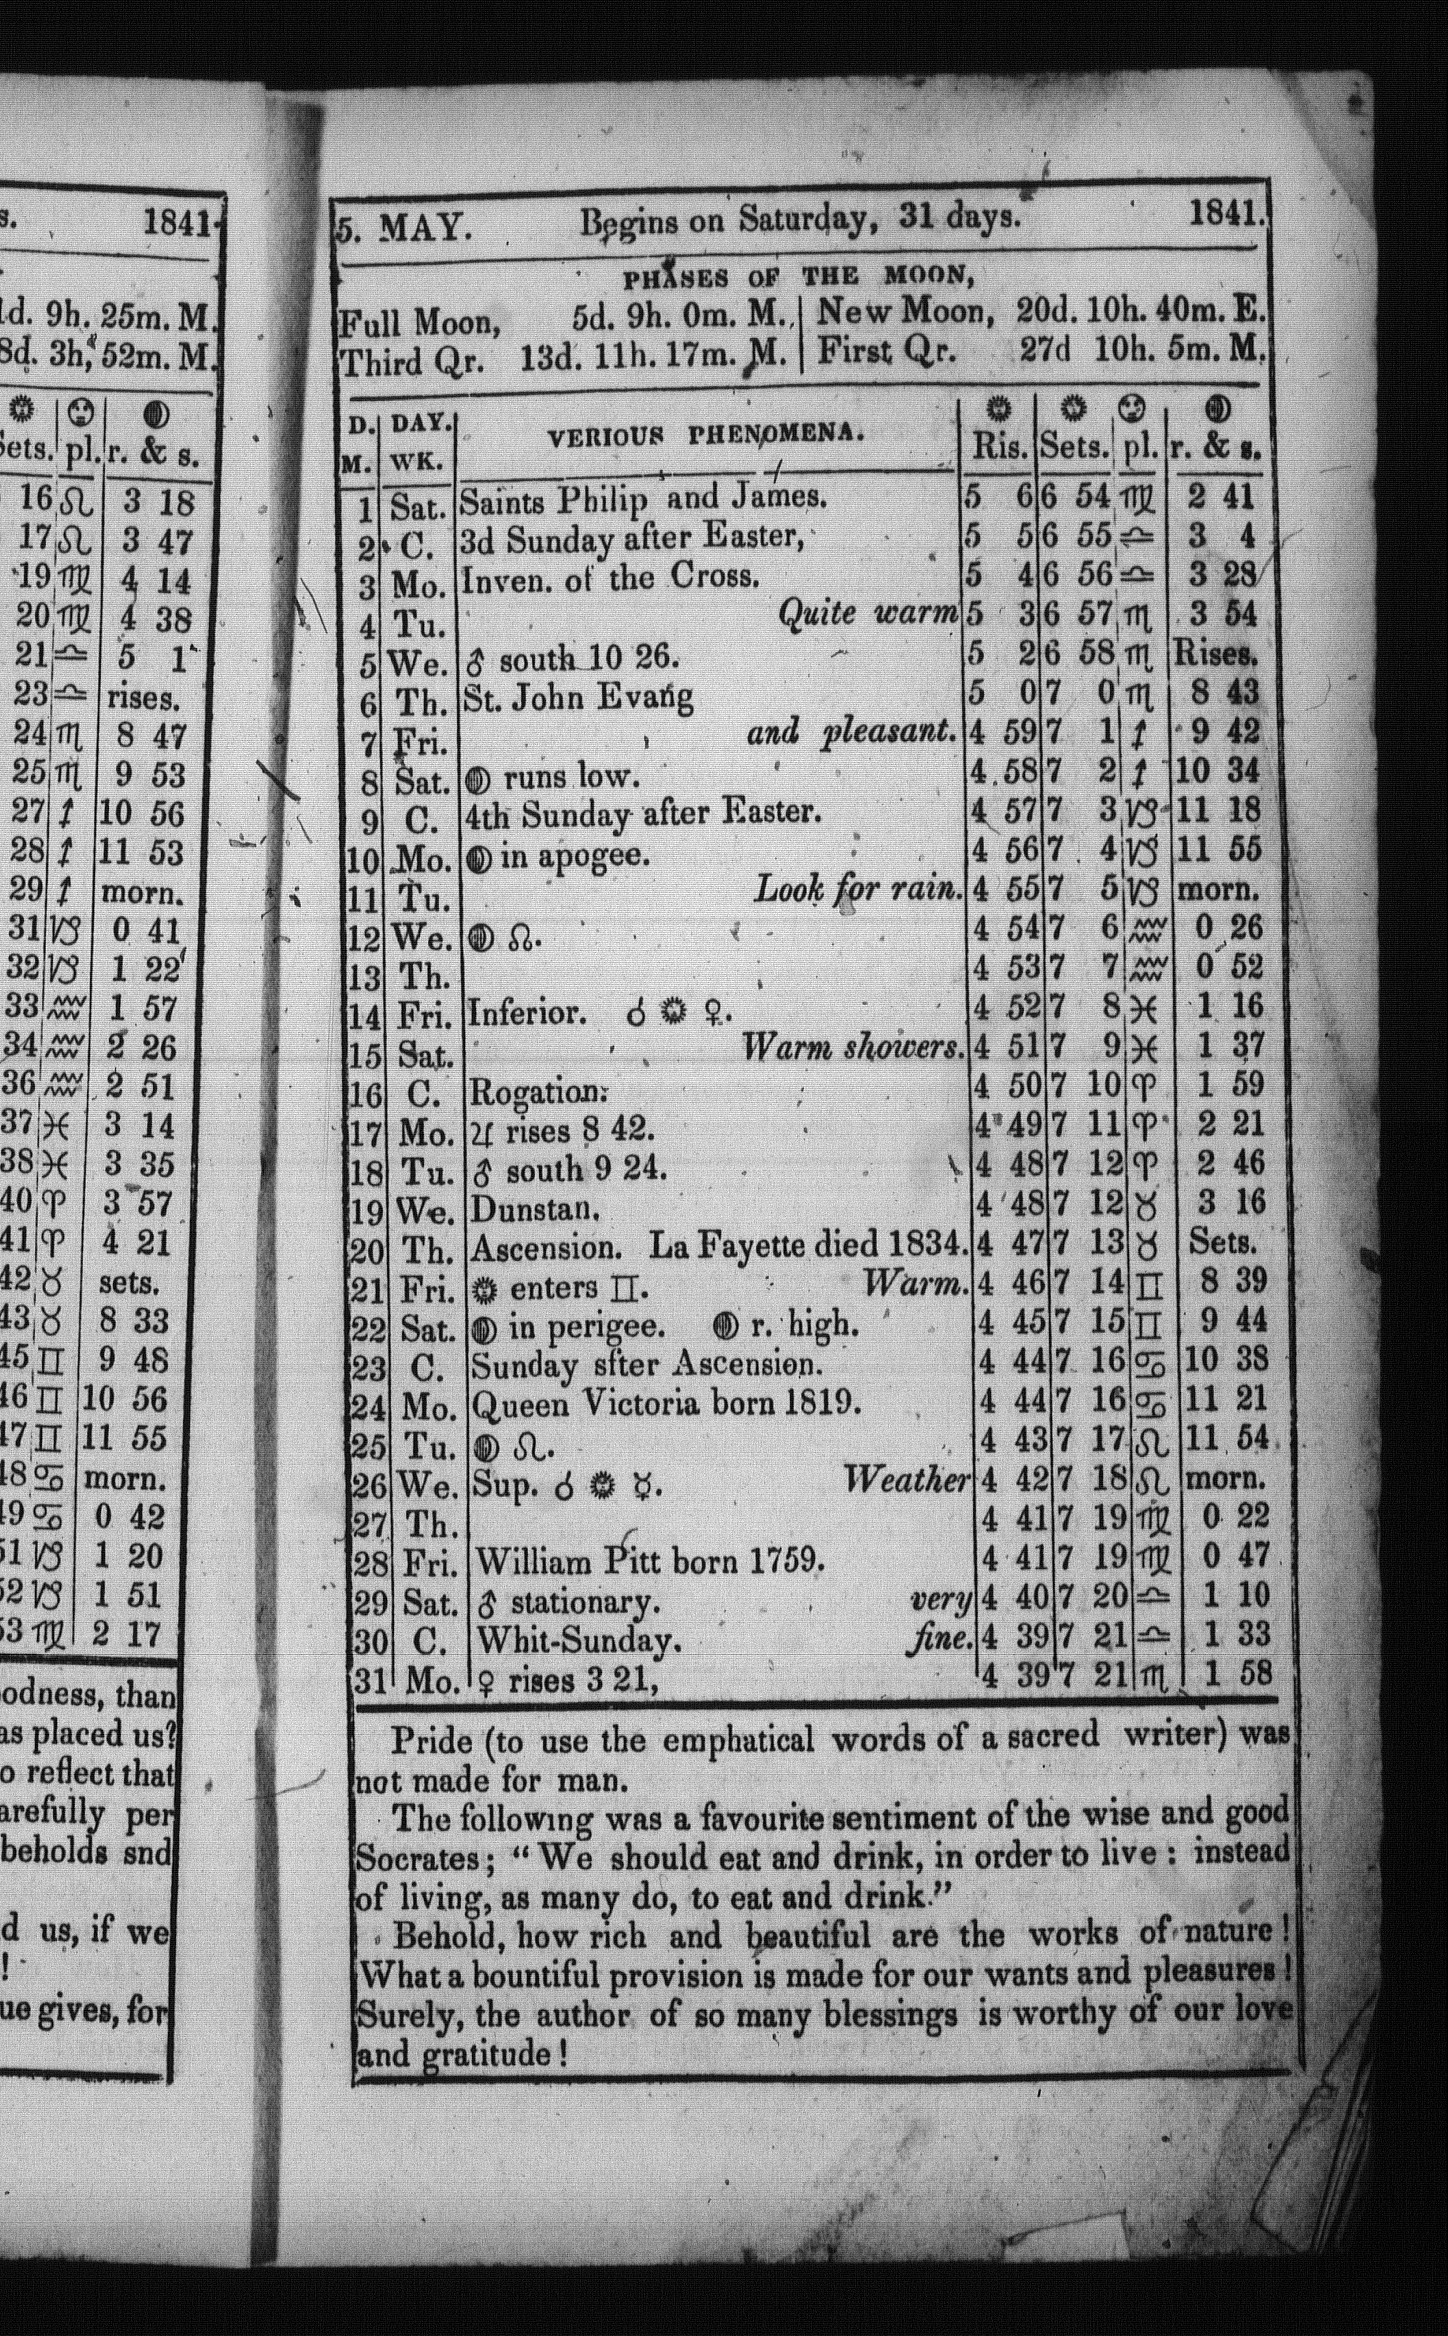 s. 1841.
1d. 9h. 25m. M.
8d. 3h, 52m. M.
Sets. pl. r. & s.
16 ♌ 3 18
17 ♌ 3 47
19 ♍ 4 14
20 ♍ 4 38
21 ♎ 5 1
23 ♎ rises.
24 ♏ 8 47
25 ♏ 9 53
27 ♐ 10 56
28 ♐ 11 53
29 ♐ morn.
31 ♑ 0 41
32 ♑ 1 22
33 ♒ 1 57
34 ♒ 2 26
36 ♒ 2 51
37 ♓ 3 14
38 ♓ 3 35
40 ♈ 3 57
41 ♈ 4 21
42 ♉ sets.
43 ♉ 8 33
45 ♊ 9 48
46 ♊ 10 56
47 ♊ 11 55
48 ♋ morn.
49 ♋ 0 42
51 ♑ 1 20
52 ♑ 1 51
53 ♍ 2 17
odness, than
as placed us?
o reflect that
arefully per
beholds snd
d us, if we
!
ue gives, for
5. MAY. Begins on Saturday, 31 days. 1841.
PHASES OF THE MOON,
Full Moon, 5d. 9h. 0m. M. New Moon, 20d. 10h. 40m. E.
Third Qr. 13d. 11h. 17m. M. First Qr. 27d 10h. 5m. M.
D. DAY. VERIOUS PHENOMENA.
M. WK. Ris. Sets. pl. r. & s.
1 Sat. Saints Philip and James. 5 6 6 54 ♍ 2 41
2 C. 3d Sunday after Easter, 5 5 6 55 ♎ 3 4
3 Mo. Inven. of the Cross. 5 4 6 56 ♎ 3 28
4 Tu. Quite warm 5 3 6 57 ♏ 3 54
5 We. ♂ south 10 26. 5 2 6 58 ♏ Rises.
6 Th. St. John Evang 5 0 7 0 ♏ 8 43
7 Fri. and pleasant. 4 59 7 1 ♐ 9 42
8 Sat. ☽ runs low. 4 58 7 2 ♐ 10 34
9 C. 4th Sunday after Easter. 4 57 7 3 ♑ 11 18
10 Mo. ☽ in apogee. 4 56 7 4 ♑ 11 55
11 Tu. Look for rain. 4 55 7 5 ♑ morn.
12 We. ☽ ☊. 4 54 7 6 ♒ 0 26
13 Th. 4 53 7 7 ♒ 0 52
14 Fri. Inferior. ☌ ☉ ♀. 4 52 7 8 ♓ 1 16
15 Sat. Warm showers. 4 51 7 9 ♓ 1 37
16 C. Rogation: 4 50 7 10 ♈ 1 59
17 Mo. ♃ rises 8 42. 4 49 7 11 ♈ 2 21
18 Tu. ♂ south 9 24. 4 48 7 12 ♈ 2 46
19 We. Dunstan. 4 48 7 12 ♉ 3 16
20 Th. Ascension. La Fayette died 1834. 4 47 7 13 ♉ Sets.
21 Fri. ☉ enters ♊. Warm. 4 46 7 14 ♊ 8 39
22 Sat. ☽ in perigee. ☽ r. high. 4 45 7 15 ♊ 9 44
23 C. Sunday sfter Ascension. 4 44 7 16 ♋ 10 38
24 Mo. Queen Victoria born 1819. 4 44 7 16 ♋ 11 21
25 Tu. ☽ ♌. 4 43 7 17 ♌ 11 54
26 We. Sup. ☌ ☉ ☿. Weather 4 42 7 18 ♌ morn.
27 Th. 4 41 7 19 ♍ 0 22
28 Fri. William Pitt born 1759. 4 41 7 19 ♍ 0 47
29 Sat. ♂ stationary. very 4 40 7 20 ♎ 1 10
30 C. Whit-Sunday. fine. 4 39 7 21 ♎ 1 33
31 Mo. ♀ rises 3 21, 4 39 7 21 ♏ 1 58
Pride (to use the emphatical words of a sacred writer) was
not made for man.
The following was a favourite sentiment of the wise and good
Socrates; “ We should eat and drink, in order to live : instead
of living, as many do, to eat and drink.”
Behold, how rich and beautiful are the works of nature !
What a bountiful provision is made for our wants and pleasures !
Surely, the author of so many blessings is worthy of our love
and gratitude !